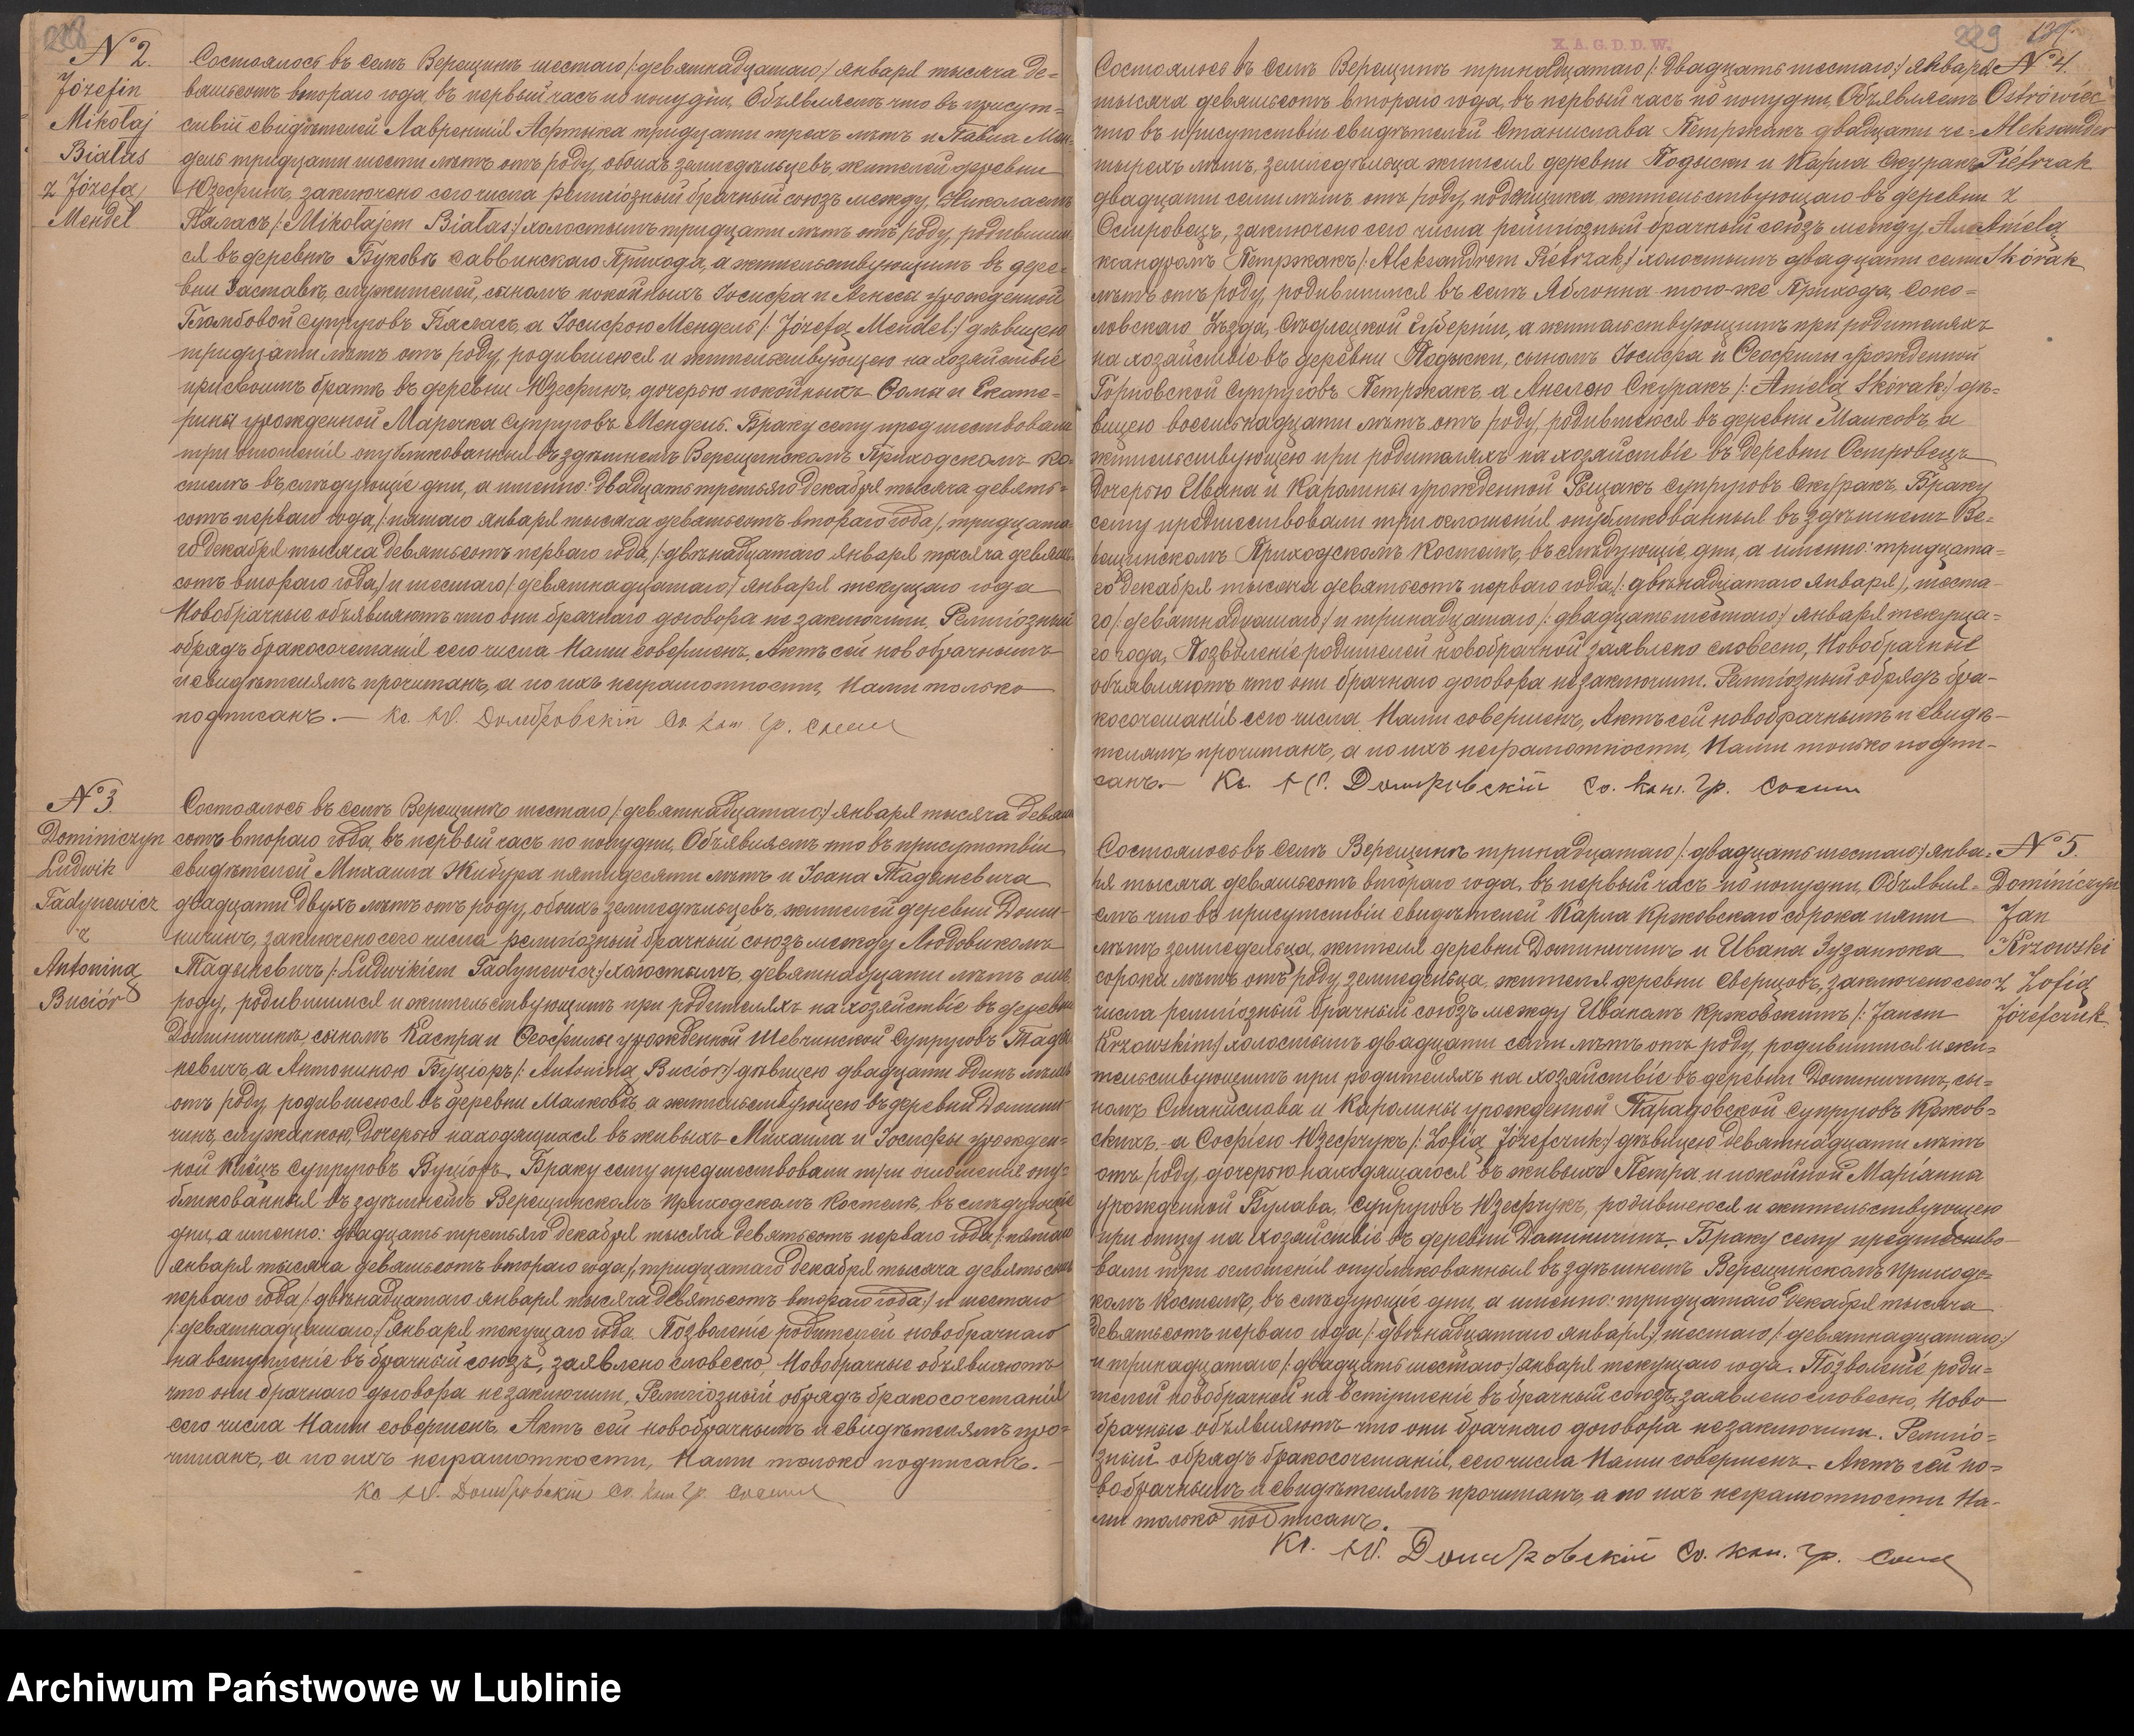 228
№ 2.
Józefin
Mikołaj
Białas
z Józefą
Mendel
Состоялось въ селѣ Верещинѣ шестаго /:девятнадцатаго:/ января тысяча де=
вятьсотъ втораго года, въ первый часъ по полудни. Объявляемъ что въ присут=
ствіи свидѣтелей Лаврентія Асртыка тридцати трехъ лѣтъ и Павла Мен=
дель тридцати шести лѣтъ отъ роду, обоихъ земледѣльцевъ, жителей деревни
Юзефинъ, заключено сего числа религіозный брачный союзъ между Николаемъ
Бялась /:Mikołajem Białas:/ холостымъ тридцати лѣтъ отъ роду, родившим=
ся въ деревнѣ Буковѣ Саввинскаго Прихода, а жительствующимъ въ дере=
вни Заставѣ, служителей, сыномъ покойныхъ Іосифа и Агнесы урожденной
супруговъ Бялась, а Іосифою Мендель /:Józefą Mendel:/ дѣвицею
тридцати лѣтъ отъ роду, родившеюся и жительствующею на хозяйствіе
при своимъ братѣ въ деревни Юзефинъ, дочерью покойныхъ Ѳомы и Екате=
рины урожденной Маречка супруговъ Мендель. Браку сему предшествовали
три оглошенія опубликованныя въ здѣшнемъ Верещинскомъ Приходскомъ Ко=
стелѣ въ слѣдующіе дни, а именно: двадцать третьяго декабря тысяча девять=
сотъ перваго года /:пятаго января тысяча девятьсотъ втораго года:/, тридцата=
го декабря тысяча девятьсотъ перваго года /:двѣнадцатаго января тысяча девять=
сотъ втораго года:/ и шестаго /:девятнадцатаго:/ января текущаго года
Новобрачные объявляютъ что они брачнаго договора не заключили. Религіозный
обрядъ бракосочетанія сего числа Нами совершенъ. Актъ сей новобрачнымъ
и свидѣтелямъ прочитанъ, а по ихъ неграмотности, Нами только
подписанъ. — Кс. W. Домбровскій Со. кан. Гр. Сосни
№ 3.
Dominiczyn
Ludwik
Tadynewicz
z
Antoniną
Buciór
Состоялось въ селѣ Верещинѣ шестаго /:девятнадцатаго:/ января тысяча девять
сотъ втораго года, въ первый часъ по полудни. Объявляемъ что въ присутствіи
свидѣтелей Михаила Жибура пятидесяти лѣтъ и Іоана Тадыневича
двадцати двухъ лѣтъ отъ роду, обоихъ земледѣльцевъ, жителей деревни Доми-
ничинъ, заключено сего числа религіозный брачный союзъ между Людовикомъ
Тадыневичъ /:Ludwikiem Tadynewicz:/ холостымъ, девятнадцати лѣтъ отъ
роду, родившимся и жительствующимъ при родителяхъ на хозяйствіе въ деревни
Доминичинъ, сыномъ Каспра и Ѳеофилы урожденной Шевчинской супруговъ Тады
невичъ, а Антониною Буціоръ /:Antoniną Buciór:/ дѣвицею двадцати одинъ лѣтъ
отъ роду, родившеюся въ деревни Малковѣ, а жительствующею въ деревни Домини
чинъ, служанкою, дочерью находящихся въ живыхъ Михаила и Іосифы урожден=
ной Клецъ супруговъ Буціоръ. Браку сему предшествовали три оглошенія опу=
бликованныя въ здѣшнемъ Верещинскомъ Приходскомъ Костелѣ, въ слѣдующіе
дни, а именно: двадцать третьяго декабря тысяча девятьсотъ перваго года /:пятаго
января тысяча девятьсотъ втораго года:/, тридцатаго декабря тысяча девятьсотъ
перваго года /:двѣнадцатаго января тысяча девятьсотъ втораго года:/ и шестаго
/:девятнадцатаго:/ января текущаго года. Позволеніе родителей новобрачнаго
на вступленіе въ брачный союзъ, заявлено словесно, Новобрачные объявляютъ
что они брачнаго договора не заключили, Религіозный обрядъ бракосочетанія
сего числа Нами совершенъ. Актъ сей новобрачнымъ и свидѣтелямъ про=
читанъ, а по ихъ неграмотности, Нами только подписанъ. —
Кс W. Домбровскій Со. Кан Гр. Сосни
X. A. G. D. D. W.
229
Состоялось въ селѣ Верещинѣ тринадцатаго /:двадцать шестаго:/ января
тысяча девятьсотъ втораго года, въ первый часъ по полудни, Объявляемъ
что въ присутствіи свидѣтелей Станислава Петржакъ двадцати че=
тырехъ лѣтъ, земледѣльца жителя деревни Подыски и Карла Скуракъ
двадцати семи лѣтъ отъ роду, подёнщика жительствующаго въ деревни
Островецъ, заключено сего числа религіозный брачный союзъ между Але
ксандромъ Петржакъ /:Aleksandrem Piétrzak:/ холостымъ двадцати семи
лѣтъ отъ роду, родившимся въ селѣ Яблонна того-же Прихода, Соко=
ловскаго Уѣзда, Сѣдлецкой Губерніи, а жительствующимъ при родителяхъ
на хозяйствіе въ деревни Подыски, сыномъ Іосифа и Ѳеофилы урожденной
Горновской супруговъ Петржакъ, а Анелею Скуракъ /:Anielą Skórak:/ дѣ=
вицею восемьнадцати лѣтъ отъ роду, родившеюся въ деревни Малковъ, а
жительствующею при родителяхъ на хозяйствіе въ деревни Островецъ
дочерью Ивана и Каролины урожденной Рыцакъ супруговъ Скуракъ. Браку
сему предшествовали три оглошенія, опубликованныя въ здѣшнемъ Ве=
рещинскомъ Приходскомъ Костелѣ, въ слѣдующіе, дни, а именно: тридцата=
го декабря тысяча девятьсотъ перваго года, /:двѣнадцатаго января:/, шеста-
го /:девятнадцатаго:/ и тринадцатаго /:двадцать шестаго:/ января текуща=
го года, Позволеніе родителей новобрачной заявлено словесно, Новобрачные
объявляютъ что они брачнаго договора не заключили. Религіозный обрядъ бра-
косочетанія сего числа Нами совершенъ, Актъ сей новобрачнымъ и свидѣ-
телямъ прочитанъ, а по ихъ неграмотности, Нами только подпи-
санъ. — Кс. W. Домбровскій Со. Кан. Гр. Сосни
№ 4.
Ostrówiec
Aleksander
Piétrzak
z
Anielą
Skórak
Состоялось въ селѣ Верещинѣ тринадцатаго /:двадцать шестаго:/ янва=
ря тысяча девятьсотъ втораго года, въ первый часъ по полудни, Объявля=
емъ что въ присутствіи свидѣтелей Карла Кржовскаго сорока пяти
лѣтъ земледельца, жителя деревни Доминичинъ и Ивана Зузанюка
сорока лѣтъ отъ роду земледельца, жителя деревни Сверщовъ, заключено сего
числа религіозный брачный союзъ между Иваномъ Кржовскимъ /:Janem
Krzowskim:/ холостымъ двадцати семи лѣтъ отъ роду, родившимся и жи=
тельствующимъ при родителяхъ на хозяйствіе въ деревни Доминичинъ, сы=
номъ Станислава и Каролины урожденной Парадовской супруговъ Кржов=
скихъ, а Софіею Юзефчукъ /:Zofią Józefczuk:/ дѣвицею девятнадцати лѣтъ
отъ роду, дочерью находящагося въ живыхъ Петра и покойной Маріанны
урожденной Булава, супруговъ Юзефчукъ, родившеюся и жительствующею
при отцу на хозяйствіе въ деревни Доминичинъ. Браку сему предшество-
вали три оглошенія опубликованныя въ здѣшнемъ Верещинскомъ Приходс=
комъ Костелѣ, въ слѣдующіе дни, а именно: тридцатаго декабря тысяча
девятьсотъ перваго года /:двѣнадцатаго января:/ шестаго /:девятнадцатаго:/
и тринадцатаго /:двадцать шестаго:/ января текущаго года. Позволеніе роди=
телей новобрачной на вступленіе въ брачный союзъ, заявлено словесно, Ново
брачные объявляютъ что они брачнаго договора не заключили. Религіо=
зный обрядъ бракосочетанія, сего числа Нами совершенъ. Актъ сей но=
вобрачнымъ и свидѣтелямъ прочитанъ, а по ихъ неграмотности На-
ми только подписанъ.
Кс. W. Домбровскій Со. Кан. Гр. Сосни
№ 5.
Dominiczyn
Jan
Krzowski
z Zofią
Józefczuk
Archiwum Państwowe w Lublinie